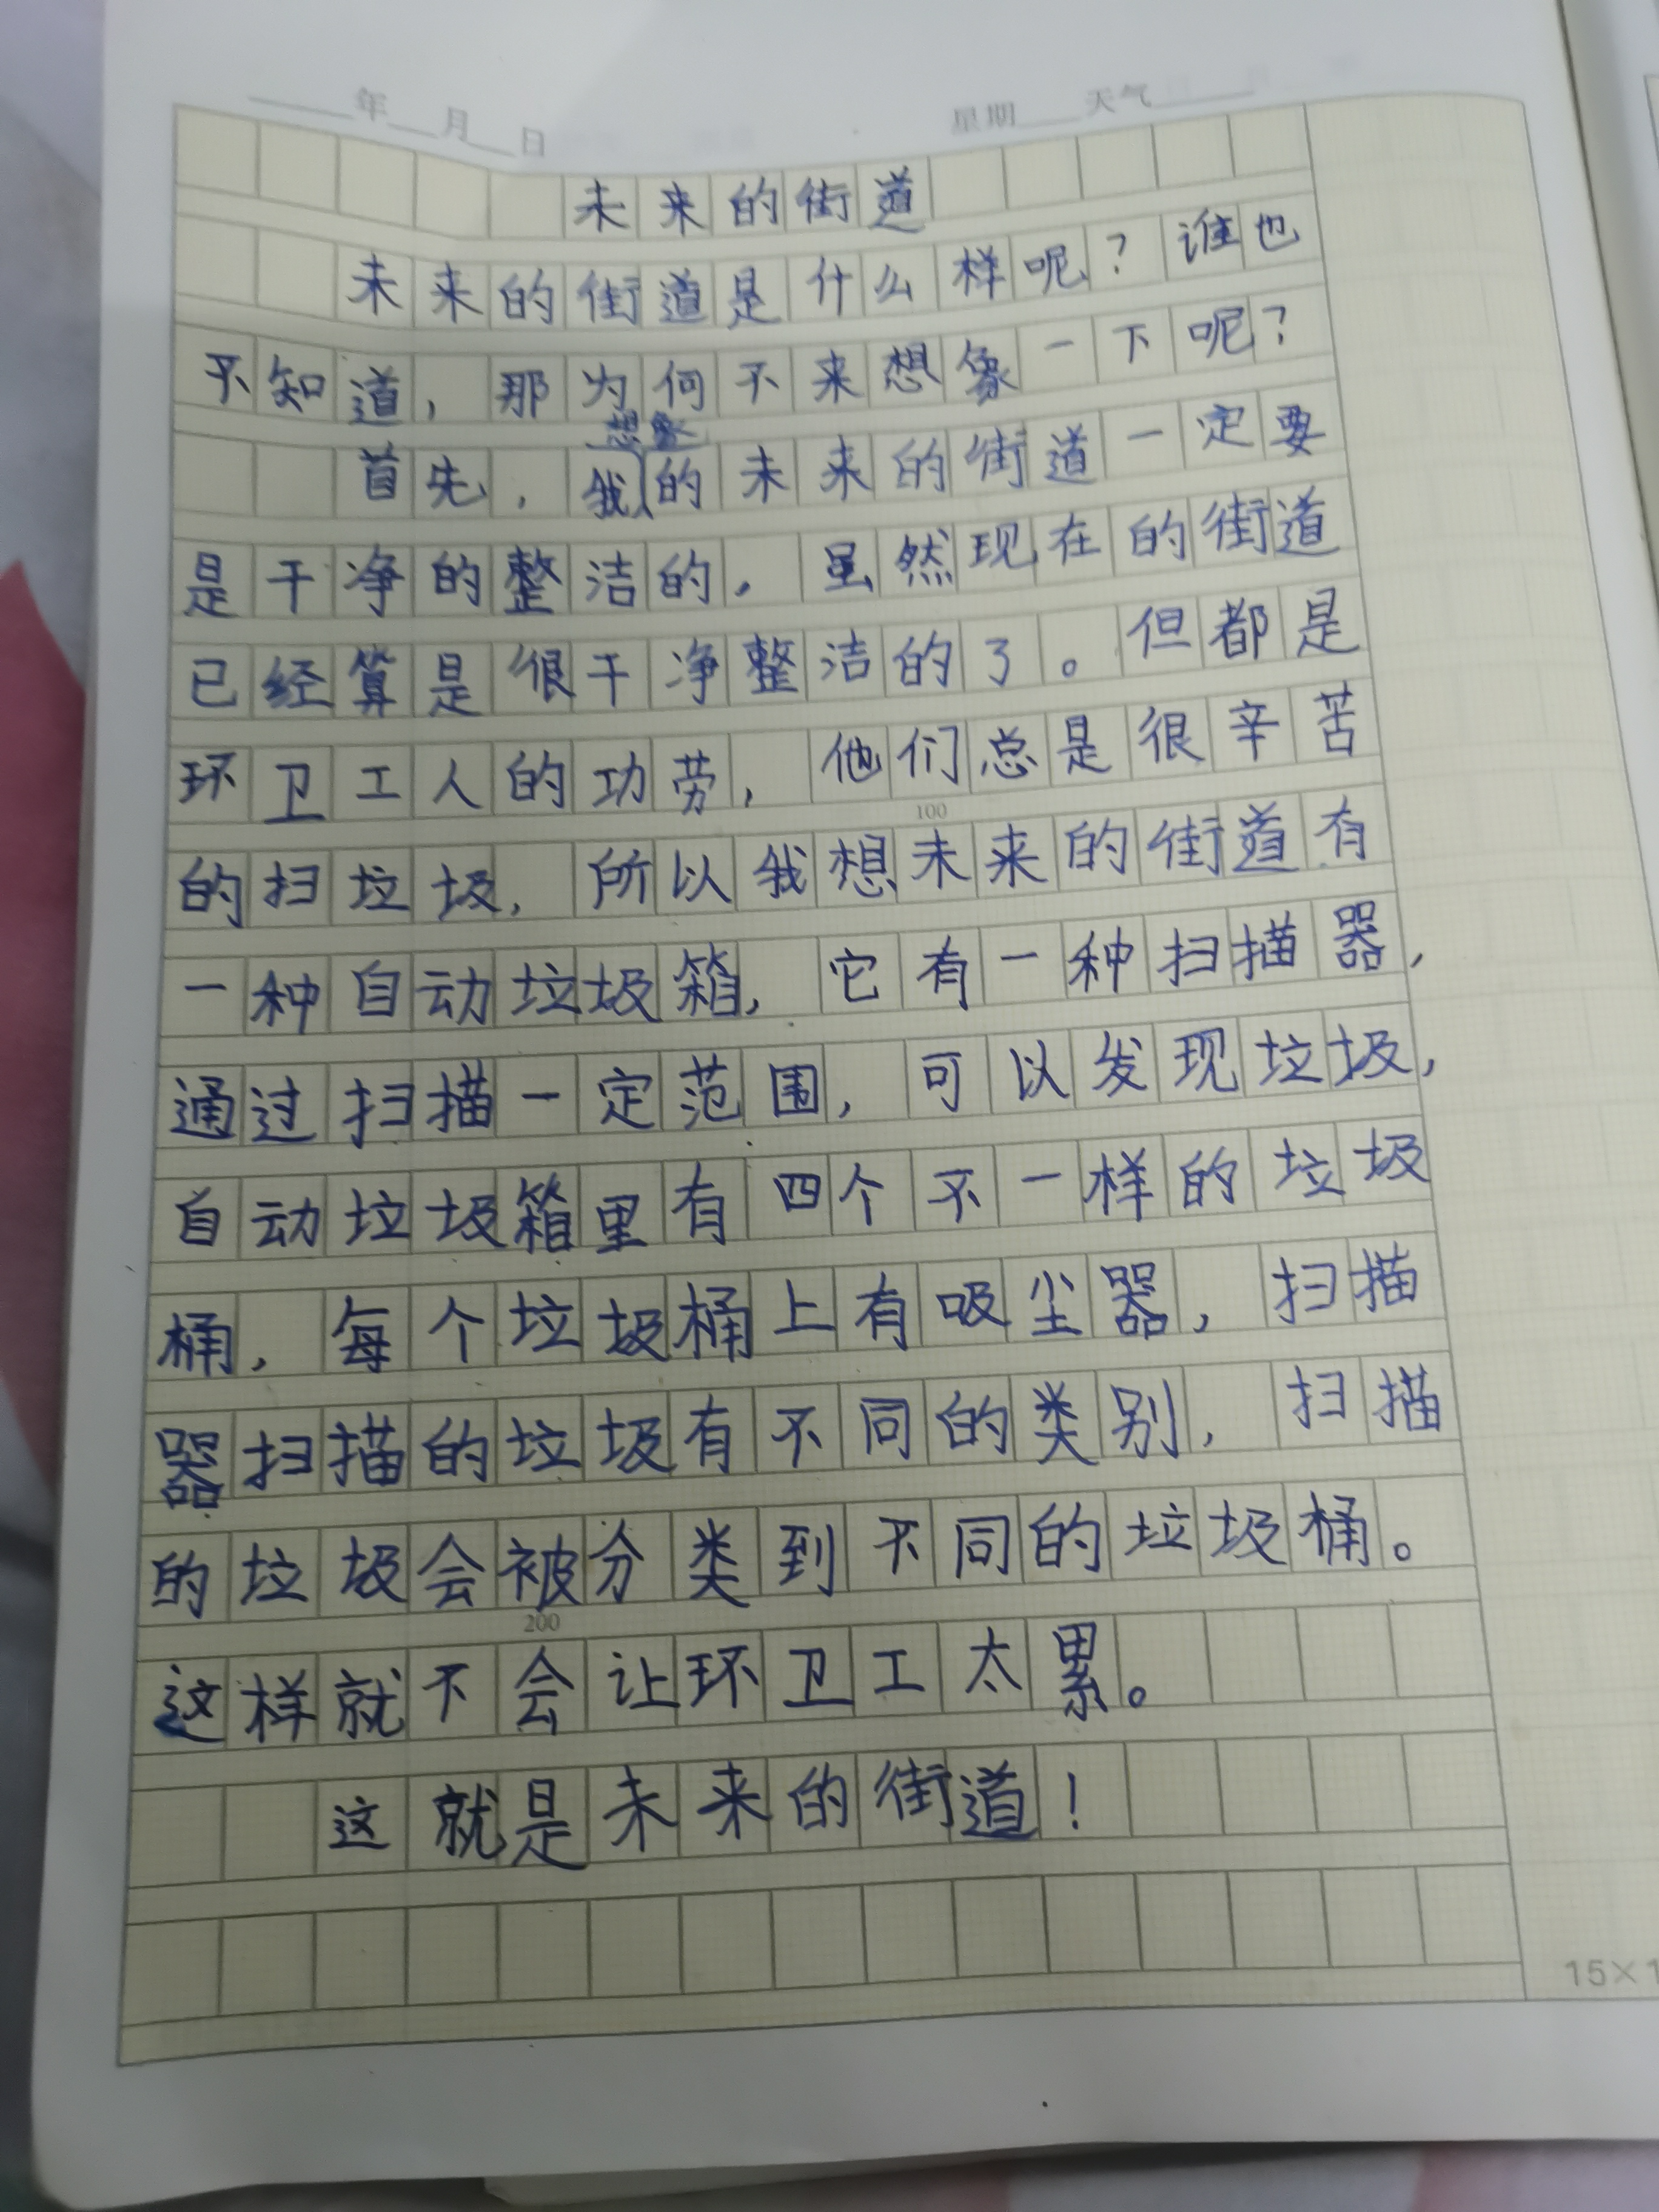 年 月 日 星期 天气
未来的街道
未来的街道是什么样呢？谁也
不知道，那为何不来想象一下呢？
想象
首先，我的未来的街道一定要
是干净的整洁的。虽然现在的街道
已经算是很干净整洁的了。但都是
环卫工人的功劳，他们总是很辛苦
100
的扫垃圾，所以我想未来的街道有
一种自动垃圾箱，它有一种扫描器，
通过扫描一定范围，可以发现垃圾，
自动垃圾箱里有四个不一样的垃圾
桶，每个垃圾桶上有吸尘器，扫描
器扫描的垃圾有不同的类别，扫描
的垃圾会被分类到不同的垃圾桶。
200
这样就不会让环卫工太累。
这就是未来的街道！
15×1